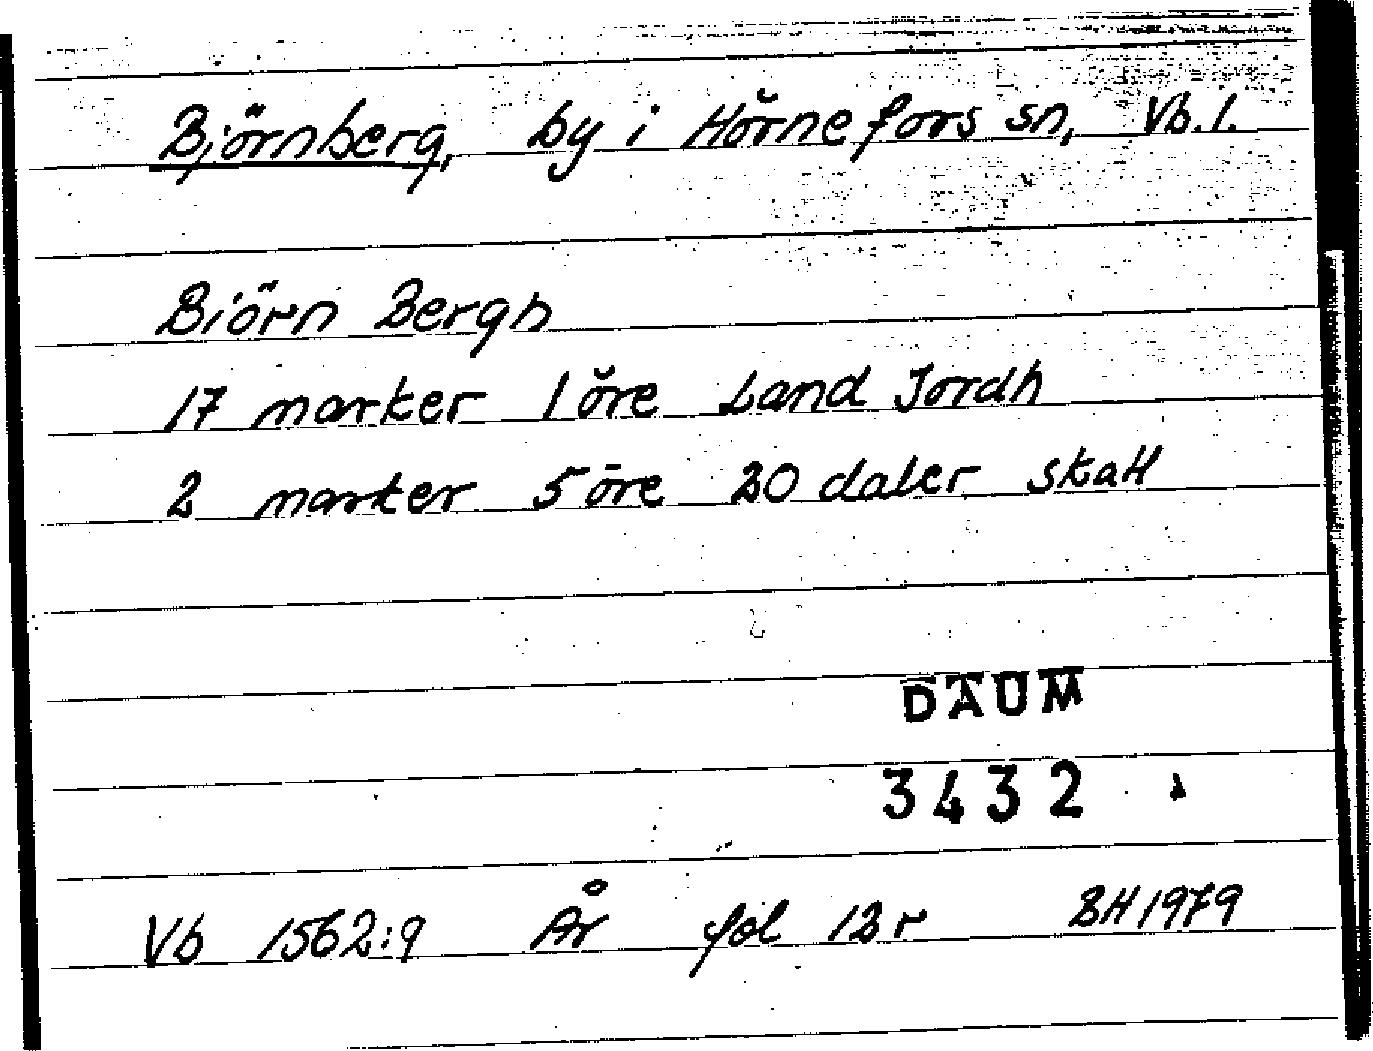 Björnberg, by i Hörnefors sn, Vb.l.
Biörn Bergh
17 marker 1 öre Land Jordh
2 marker 5 öre 20 daler skatt
DAUM
3432
Vb 1562:9 År fol 12r BH 1979